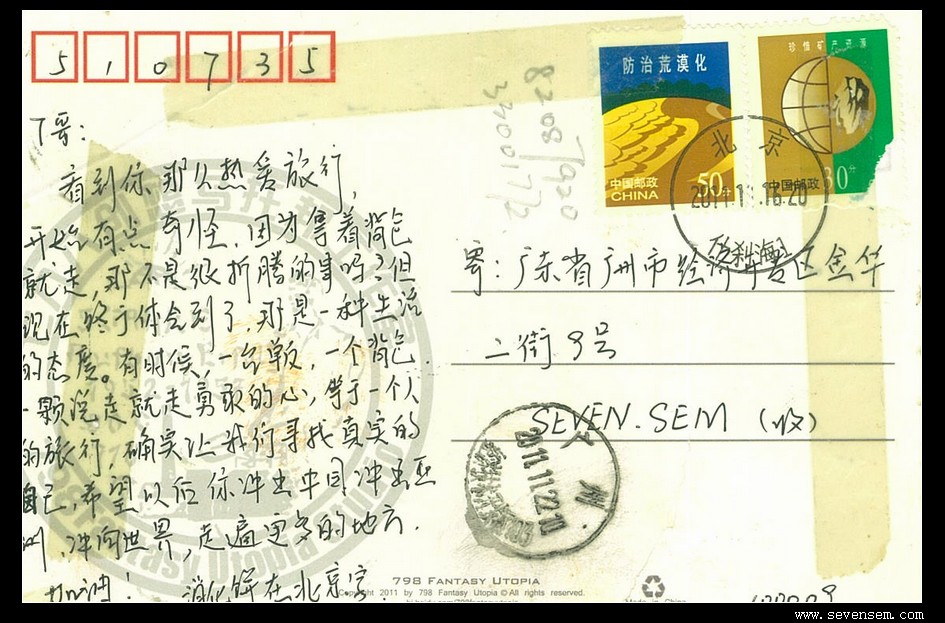 510735
丁哥:
看到你那么热爱旅行,
开始有点奇怪,因为拿着背包
就走,那不是很折腾的事吗?但
现在终于体会到了,那是一种生活
的态度。有时候,一台单,一个背包.
一颗说走就走勇敢的心,等于一个人
的旅行,确实让我们寻找真实的
自己,希望以后你冲出中国冲出亚
洲,冲向世界,走遍更多的地方.
加油! 消化饼在北京字.
82087920
34001772
防治荒漠化
50分
中国邮政
CHINA
珍惜矿产资源
中国邮政
30分
北京
2011.11.16.20
什刹海
寄:广东省广州市经济开发区金华
二街9号
SEVEN.SEM (收)
广州
2011.11.22.10
798 FANTASY UTOPIA
Copyright 2011 by 798 Fantasy Utopia © All rights reserved.
Made in China
www.sevensem.com